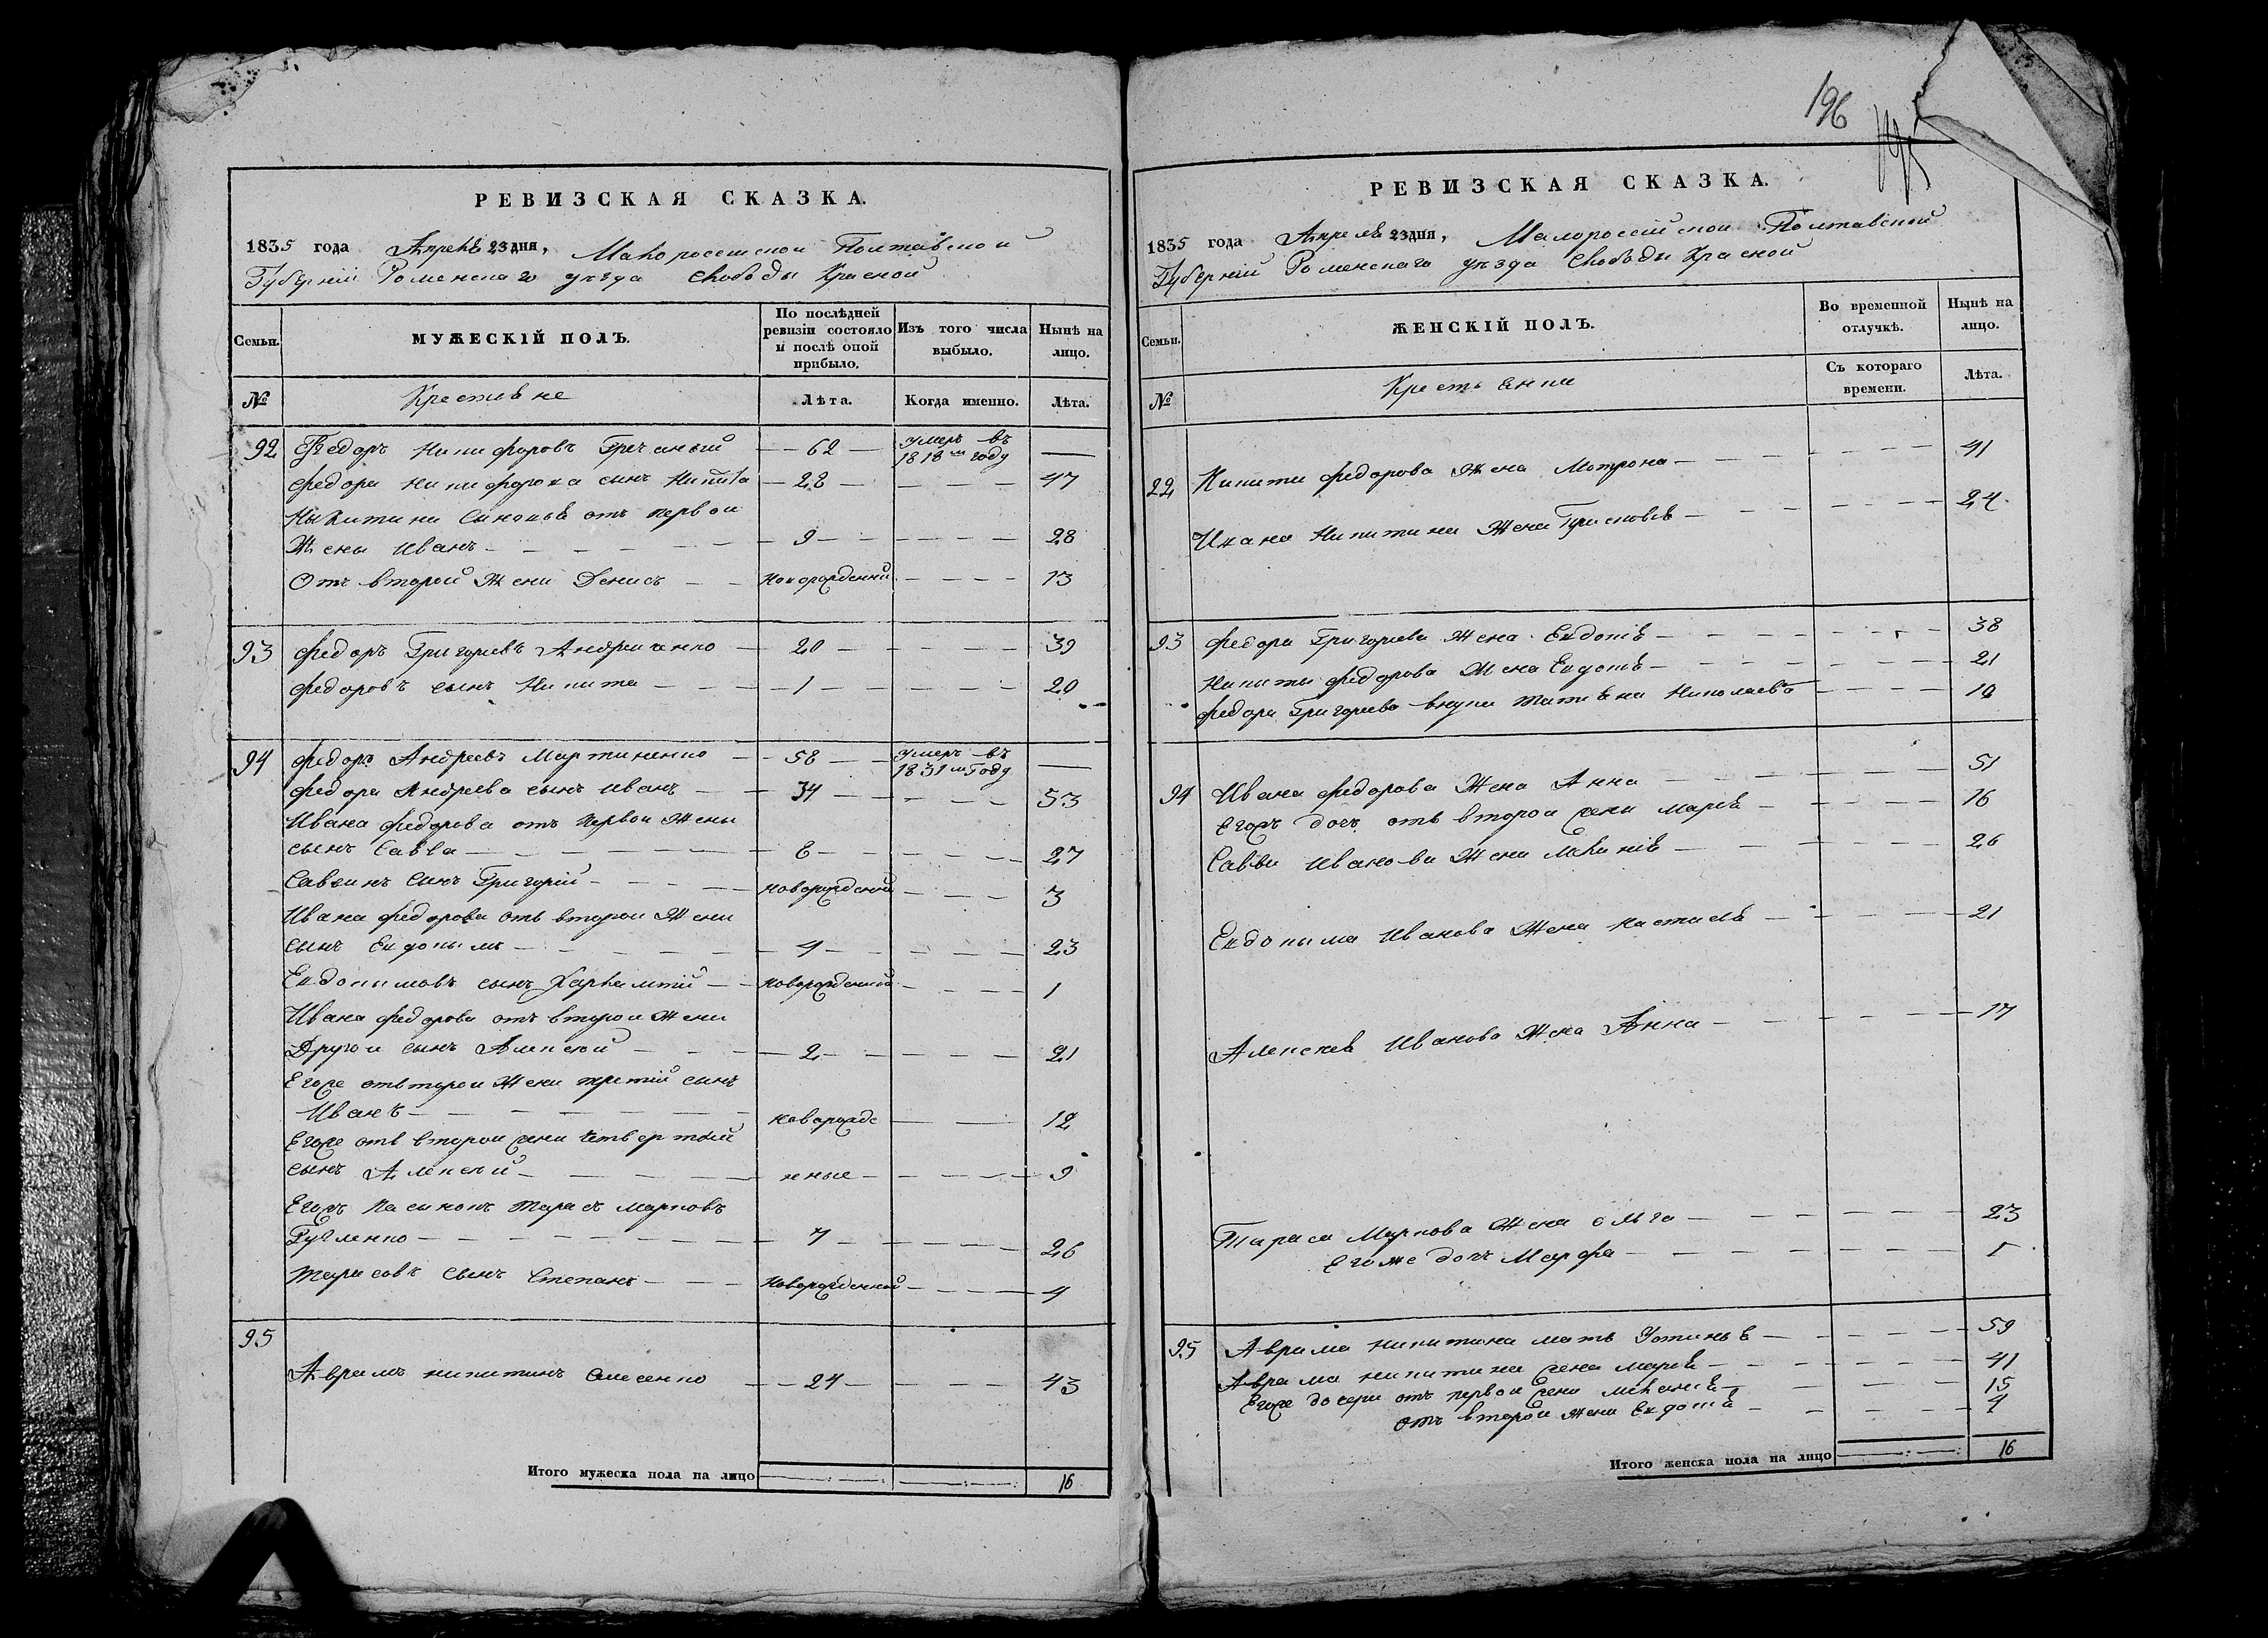 196
195
РЕВИЗСКАЯ СКАЗКА.
1835 года Апреля 23 дня, Малоросийской Полтавской
Губерніи Роменскаго уезда Слободы Красной
Семьи.
МУЖЕСКІЙ ПОЛЪ.
По послѣдней ревизіи состояло и послѣ оной прибыло.
Изъ того числа выбыло.
Нынѣ на лицо.
№ Крестьяне Лѣта. Когда именно. Лѣта.
92 Федоръ Никифоровъ Гречаный — 62 — умеръ въ 1818м году —
Федора Никифорова сынъ Никита — 28 — 47
Никитини Синовья отъ первои
Жены Иванъ — 9 — 28
Отъ второй Жени Денисъ — новорожденний — 13
93 Федоръ Григорьевъ Андрющенко — 20 — 39
Федоровъ сынъ Никита — 1 — 20
94 Федоръ Андреевъ Мартиненко — 58 — умеръ въ 1831м году —
Федора Андреева сынъ Иванъ — 34 — 53
Ивана Федорова отъ первои Жены
сынъ Савва — 8 — 27
Саввинъ Синъ Григорій — новорожденний — 3
Ивана Федорова отъ второи Жени
сынъ Евдокимъ — 4 — 23
Евдокимовъ сынъ Харлампій — новорожденной — 1
Ивана Федорова отъ второи Жени
Другои сынъ Алексей — 2 — 21
Егоже отвторои Жени третій сынъ
Иванъ — новорожде — 12
Егоже отъ второи жени четвертой
сынъ Алексей — нные — 9
Егожъ Пасынокъ Тарасъ Марковъ
— 7 — 26
Тарасовъ Сынъ Степанъ — Новорожденной — 4
95
Аврамъ Никитинъ — 24 — 43
Итого мужеска пола на лицо 16
РЕВИЗСКАЯ СКАЗКА.
1835 года Апреля 23 дня, Малоросеійской Полтавской
Губерніи Роменскаго уезда Слободы Красной
Семьи.
ЖЕНСКІЙ ПОЛЪ.
Во временной отлучкѣ.
Нынѣ на лицо.
№ Крестьянки Съ котораго времени. Лѣта.
Никити Федорова Жена Мотрона — 41
22
Ивана Никитина Жена — 24
93 Федора Григорьева Жена Евдокія — 38
Никиты Федорова Жена Евдокія — 21
Федора Григорьева внука Татьяна Николаева — 10
94 Ивана Федорова Жена Анна — 51
Егожъ дочь отъ второи жени марья — 16
Саввы Иванова Жена — 26
Евдокима Иванова Жена Настасья — 21
Алексея Иванова Жена Анна — 17
Тараса Маркова Жена Ольга — 23
Егоже дочь Марфа — 1
95 Аврама Никитина мать Устинья — 59
Аврама никитина жена марья — 41
Егоже дочери отъ первои жени — 15
отъ второй жени Евдокія — 4
Итого женска пола на лицо 16